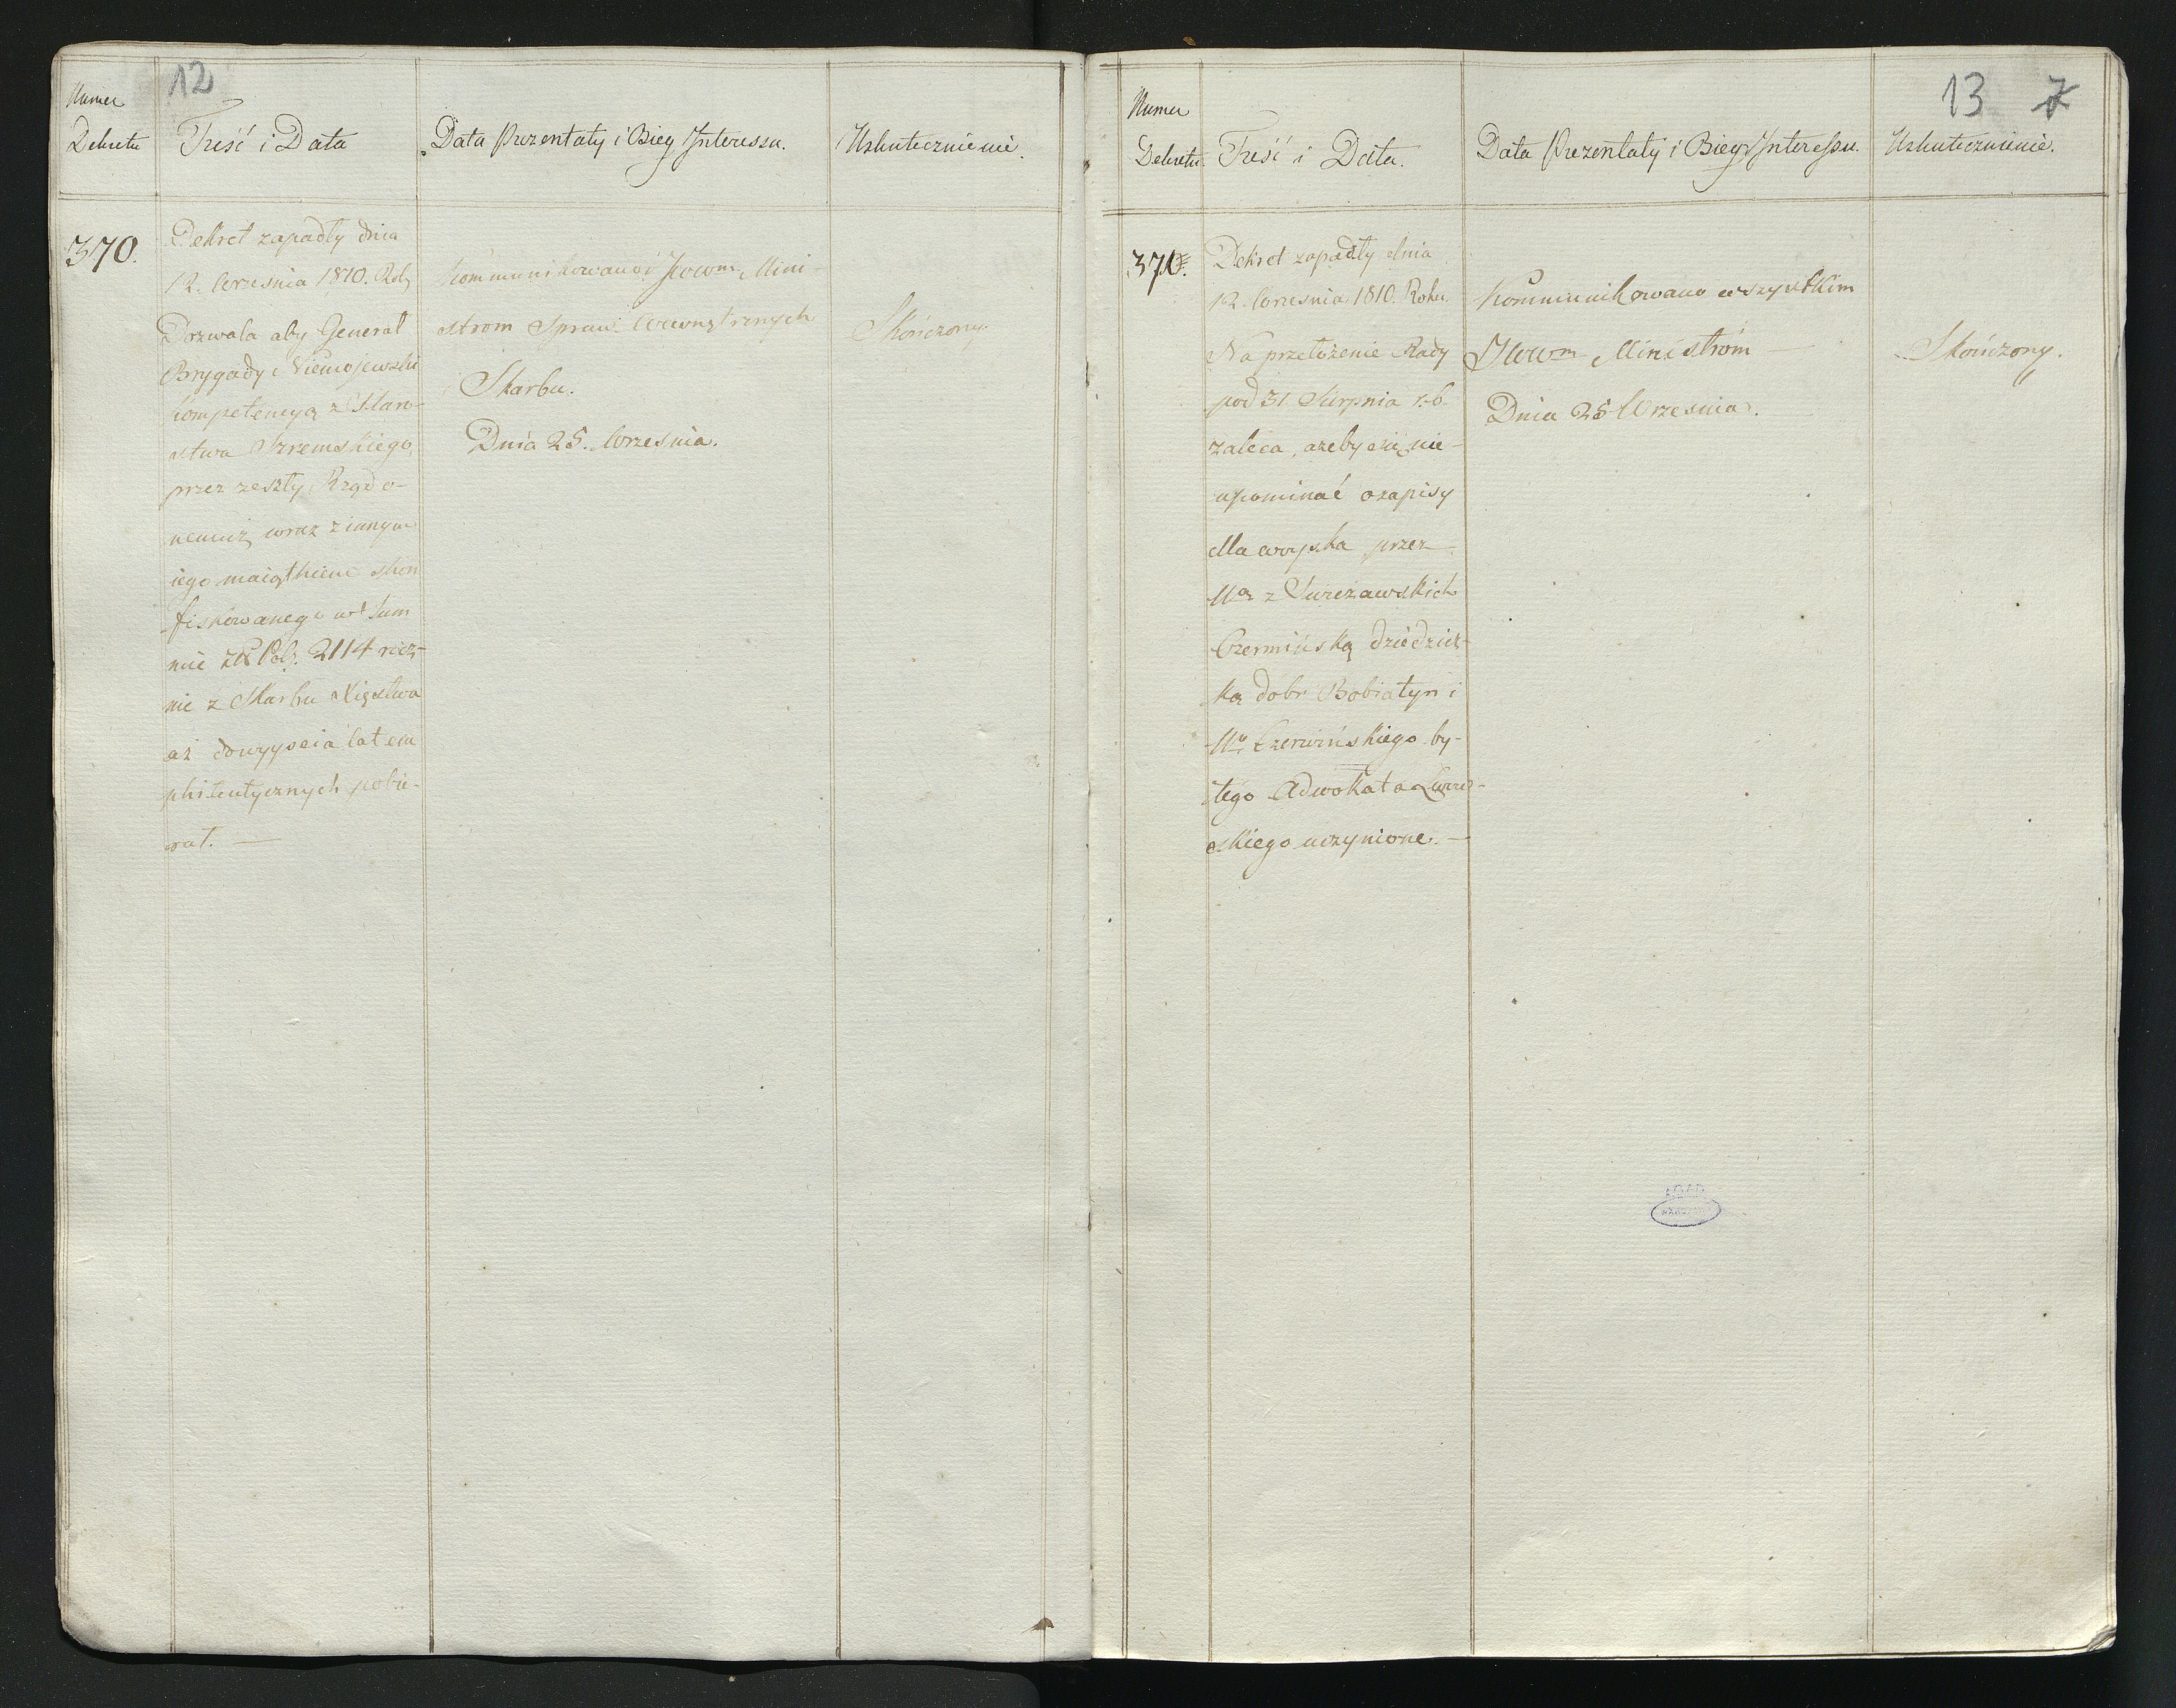 12
Numer
Dekretu
Treść i Data
Data Prezentaty i Bieg Interessu.
Uskutecznienie.
370.
Dekret zapadły dnia
12. Września 1810. Rok,
Dozwala aby Generał
Brygady Niemojewski
kompetencyą z Staro-
stwa Szremskiego,
przez zeszły Rząd o-
nemuż wraz z innym
iego maiątkiem skon
fiskowanego w Sum
mie Zł Pol. 2114 rocz-
nie z Skarbu Xięstwa
aż do wyyścia lat em
phiteutycznych pobie-
rał. —
Kommunikowano JWWm Mini-
strom Spraw Wewnętrznych
i Skarbu.
Dnia 25. Września.
Skończony.
13 7
Numer
Dekretu.
Treść i Data.
Data Prezentaty i Bieg Interessu.
Uskutecznienie.
371.
Dekret zapadły dnia
12. Września 1810. Roku.
Na przełożenie Rady
pod 31 Sierpnia r. b.
zaleca, ażeby się nie-
upominać o zapisy
dla woyska przez
Czermińską dziedzicz-
ką dobr Bobiatyn i
Czerwińskiego by-
łego Adwokata Lwow-
skiego uczynione. —
Kommunikowano wszystkim
JWWm Ministrom —
Dnia 25 Września.
Skończony.